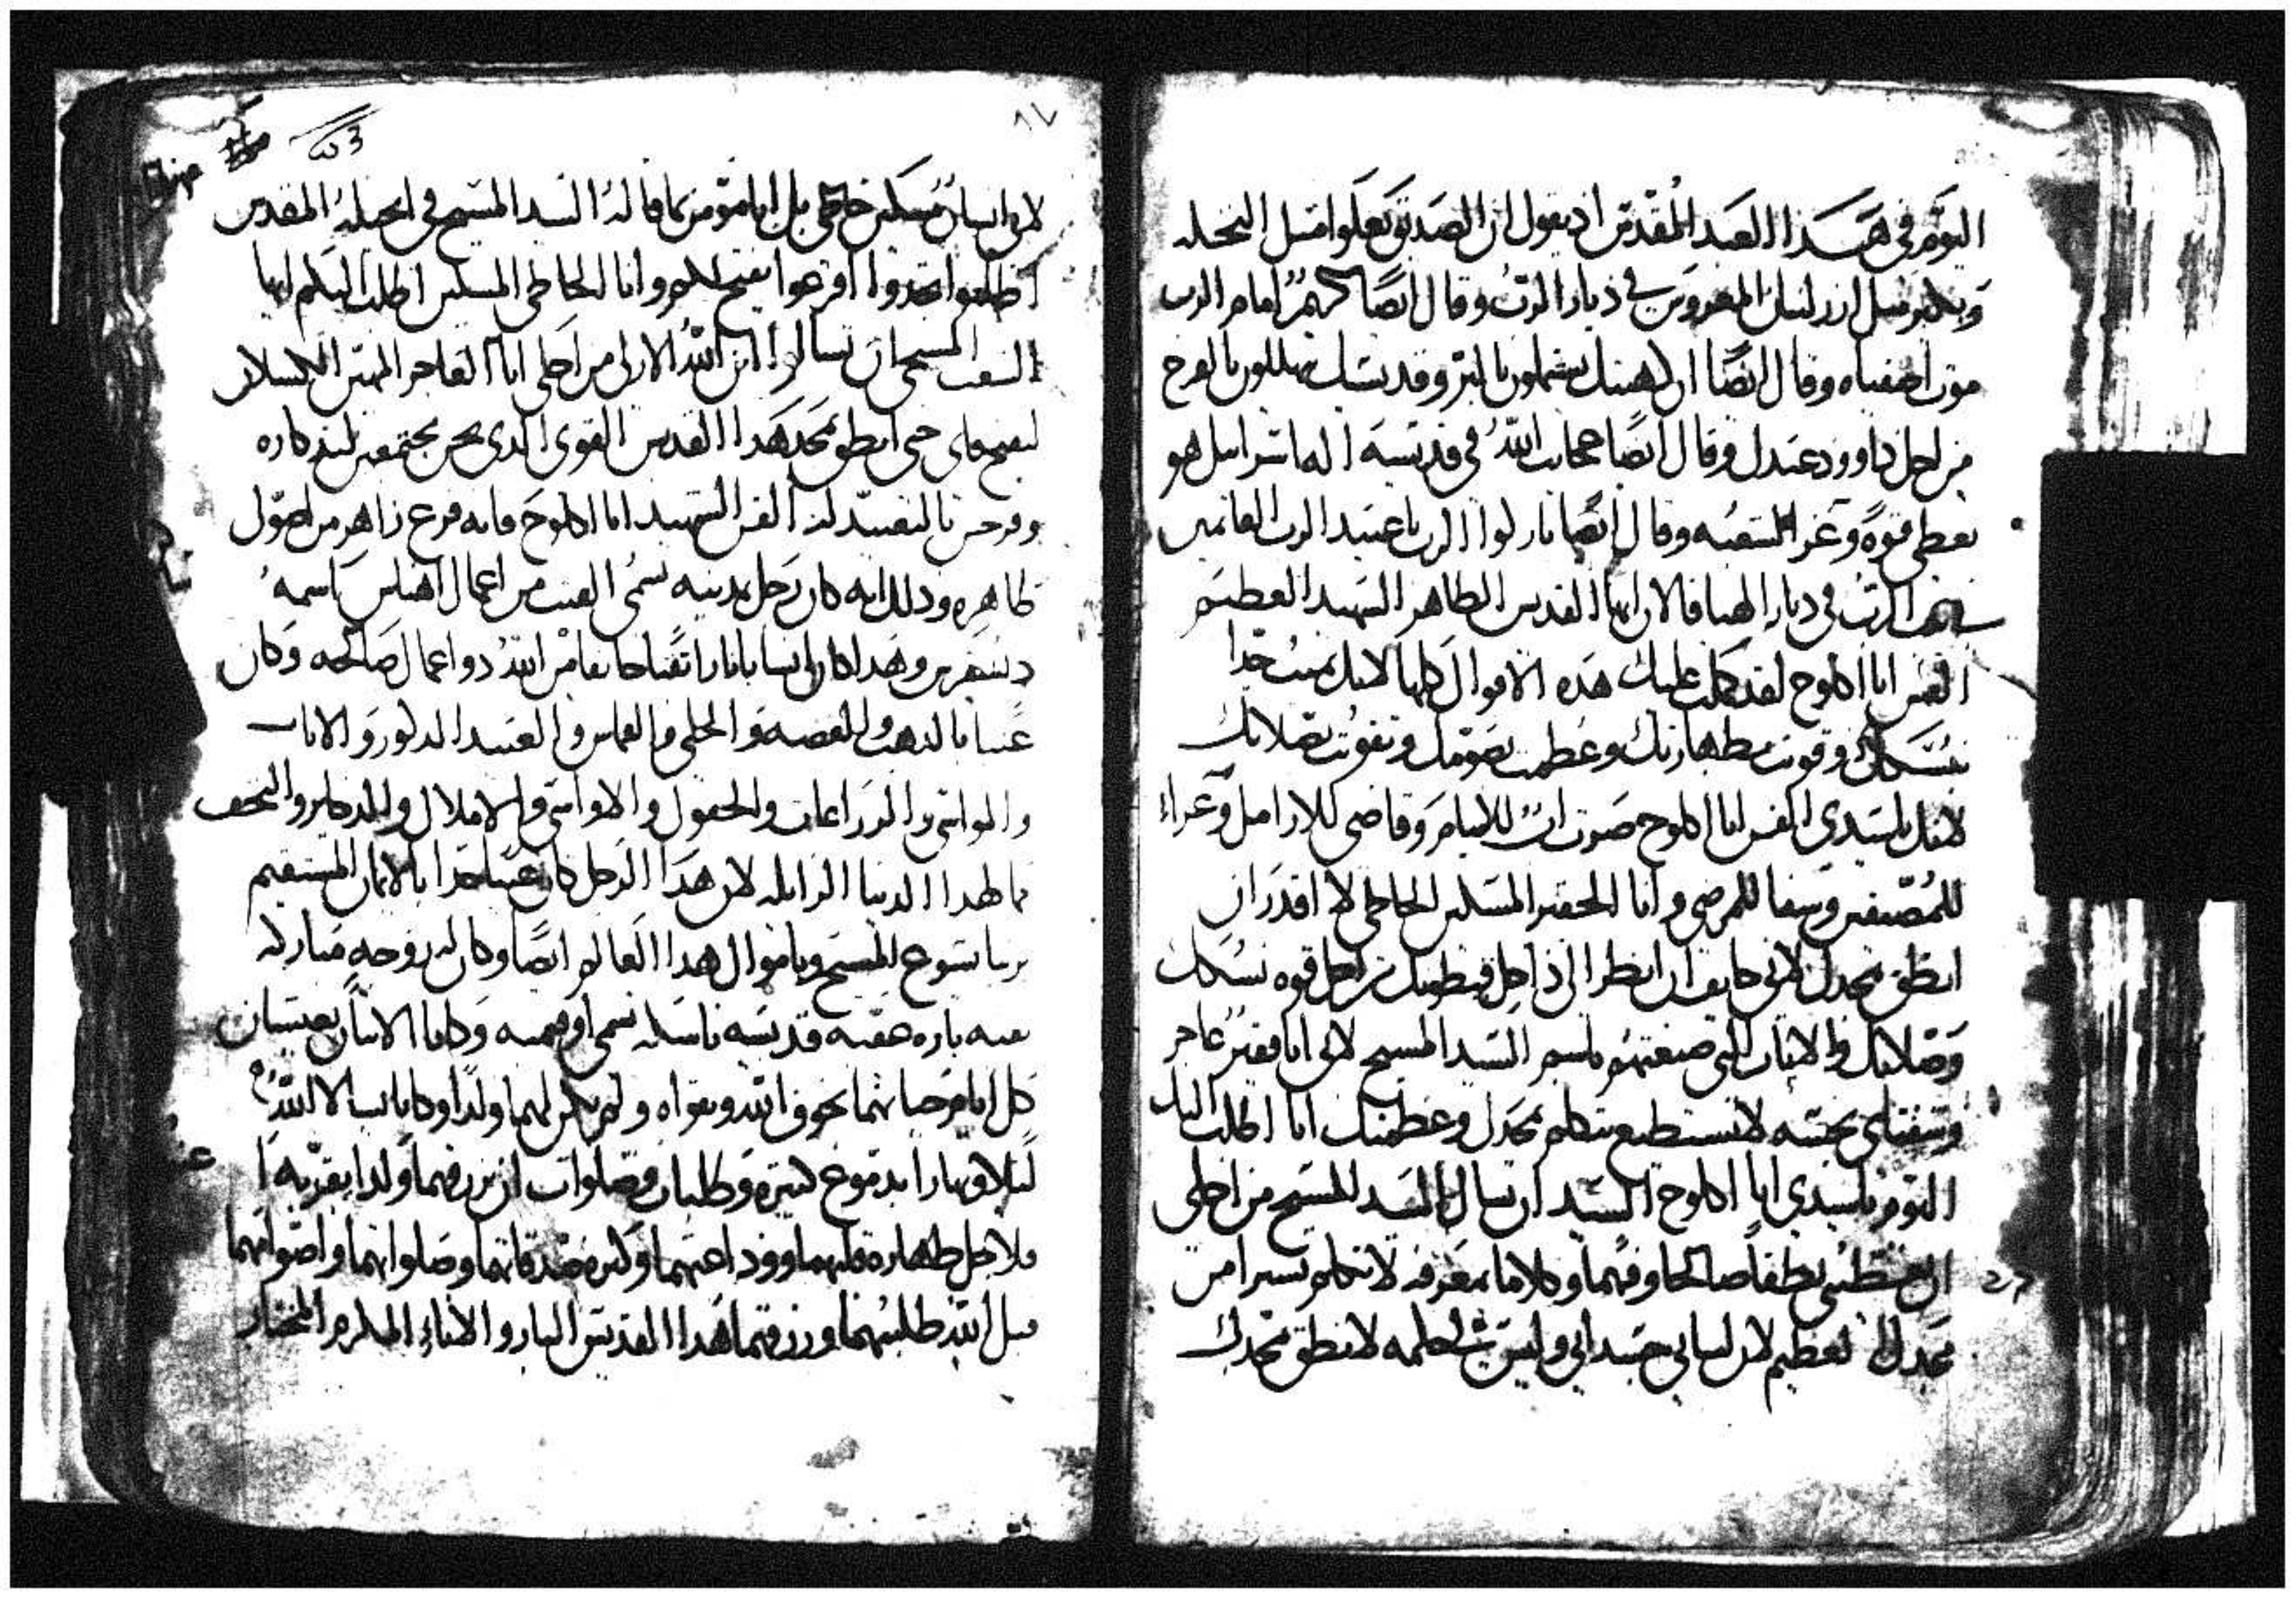 اليوم في هذا العيد المقدس اذ يقول ان الصديق يعلوا مثل النخله
وينمو مثل ارز لبنان المغروسين في ديار الرب وقال ايضا كريم امام الرب
موت اصفياه وقال ايضا ان كهنتك يشتملون بالبر وقديسيك يهللون بالفرح
من اجل داوود عبدك وقال ايضا عجايب الله في قديسيه اله اسرائيل هو
يعطي قوة وعز لشعبه وقال ايضا باركوا الرب يا عبيد الرب القايمين
في بيت الرب في ديار الهنا فالان ايها القديس الطاهر الشهيد العظيم
القس ابا اكلوج لقد كملت عليك هذه الاقوال كلها لانك نميت جدا
بنسكك وقويت بطهارتك وعظمت بصومك وتقويت بصلاتك
لانك يا سيدي القس ابا اكلوج صرت اب للايتام وقاضي للارامل وعزاء
للمضيقين وشفا للمرضى وانا الحقير المسكين الخاطي لا اقدر ان
انطق بمجدك لاني خايف ان انظر الى ذاخل قيطونك من اجل قوة نسكك
وصلاتك والايات التي صنعتهم باسم السيد المسيح لاني انا فقير عاجز
وشفتاي نجسه لا تستطيع تتكلم بمجدك وعظمتك انا اطلب اليك
اليوم يا سيدي ابا اكلوج السيد ان تسال السيد المسيح من اجلي
ان يعطيني نطقا صالحا وفهما وكلاما بمعرفه لاتكلم يسيرا من
مجدك العظيم لان لساني جسداني وليس لي كلمه لانطق بمجدك
٨٧
لاني انسان مسكين خاطي بل انا مؤمن بما قاله السيد المسيح في انجيله المقدس
اطلبوا تجدوا اقرعوا يفتح لكم وانا الخاطي المسكين اطلب اليكم ايها
الشعب المسيحي ان تسالوا ابن الله الازلي من اجلي انا العاجز المهتم بالكسلان
ليفتح فاي حتى انطق بمجد هذا القديس القوي الذي نحن مجتمعين لتذكاره
وفرحين بالتعييد له القس الشهيد ابا اكلوج فانه فرع زاهر من اصول
طاهره وذلك انه كان رجل بمدينه تسمى الفنت من اعمال اهناس اسمه
وهذا كان انسانا بارا تقيا خايفا من الله ذو اعمال صالحه وكان
غنيا بالذهب والفضه والحلي والقماش والعبيد الذكور والاناث
والمواشي والزراعات والحقول والاواني والاملاك والدكاكين والتحف
بها لهذا الدنيا الزايله لان هذا الرجل كان غنيا جدا بالايمان المستقيم
بربنا يسوع المسيح وباموال هذا العالم ايضا وكان له زوجه مباركه
تقيه باره عفيفه قديسه ناسكه تسمى اوفميه وكانا الاثنان يعيشان
كل ايام حياتهما بخوف الله وتقواه ولم يكن لهما ولدا وكانا يسالا الله
ليلا ونهارا بدموع كثيره وطلبات وصلوات ان يرزقهما ولدا يقر به
ولاجل طهارة قلبهما ووداعتهما وكثرة صدقاتهما وصلواتهما واصوامهما
قبل الله طلبتهما ورزقهما هذا القديس البار والاناء المكرم المختار